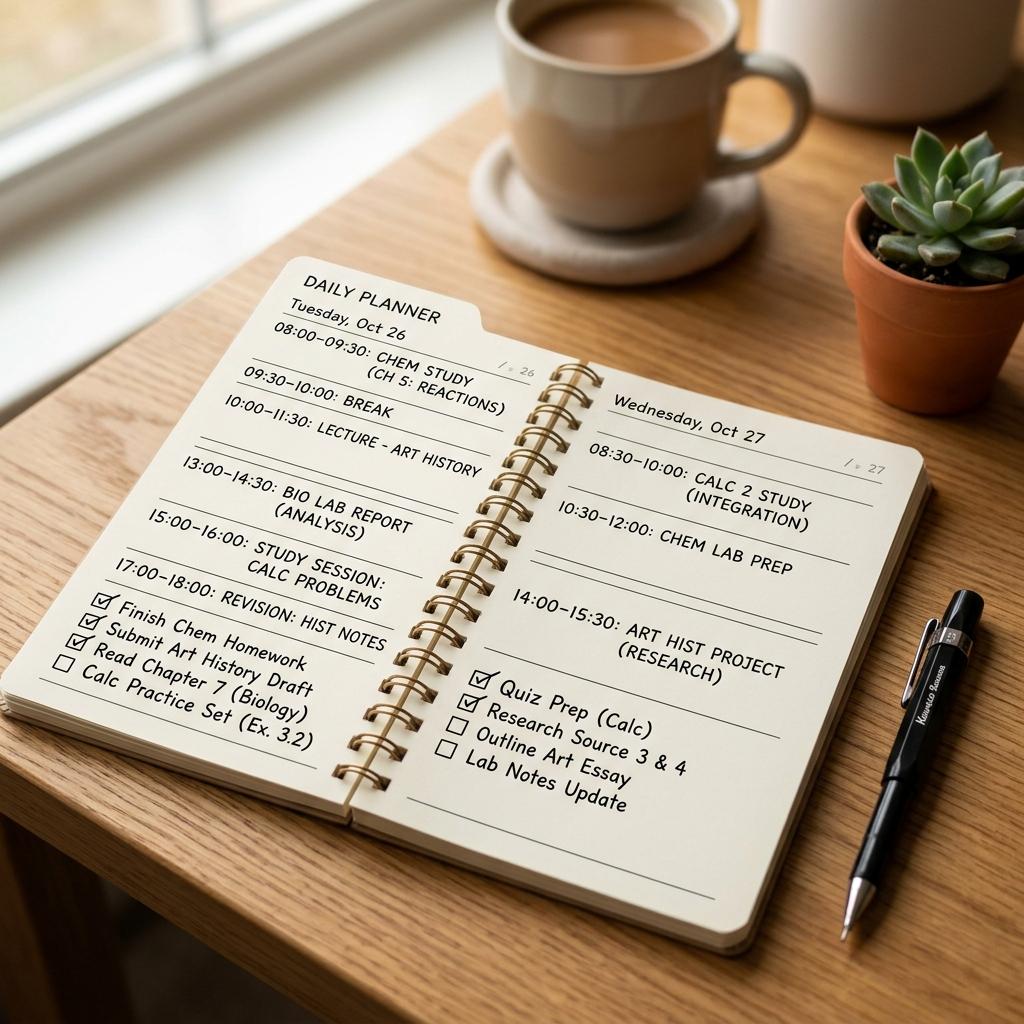 DAILY PLANNER
Tuesday, Oct 26
08:00–09:30: CHEM STUDY
(CH 5: REACTIONS)
26
09:30–10:00: BREAK
10:00–11:30: LECTURE - ART HISTORY
13:00–14:30: BIO LAB REPORT
(ANALYSIS)
15:00–16:00: STUDY SESSION:
CALC PROBLEMS
17:00–18:00: REVISION: HIST NOTES
Finish Chem Homework
Submit Art History Draft
Read Chapter 7 (Biology)
Calc Practice Set (Ex. 3.2)
Wednesday, Oct 27
27
08:30–10:00: CALC 2 STUDY
(INTEGRATION)
10:30–12:00: CHEM LAB PREP
14:00–15:30: ART HIST PROJECT
(RESEARCH)
Quiz Prep (Calc)
Research Source 3 & 4
Outline Art Essay
Lab Notes Update